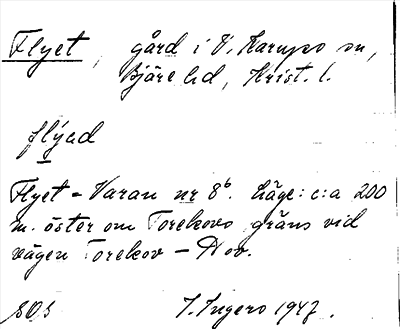 Flyet, gård i V. Karups sn,
Bjäre hd, Krist. l.
flýad
Flyet = Varan nr 8ᵇ. Läge: c:a 200
m. öster om Torekovs gräns vid
vägen Torekov – Hov.
I. Ingers 1947.